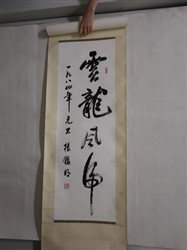 雲龍風虎
一九八四年元旦